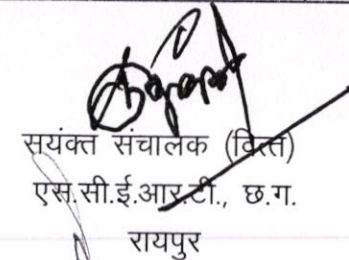 सयंक्त संचालक (वित्त)
एस.सी.ई.आर.टी., छ.ग.
रायपुर